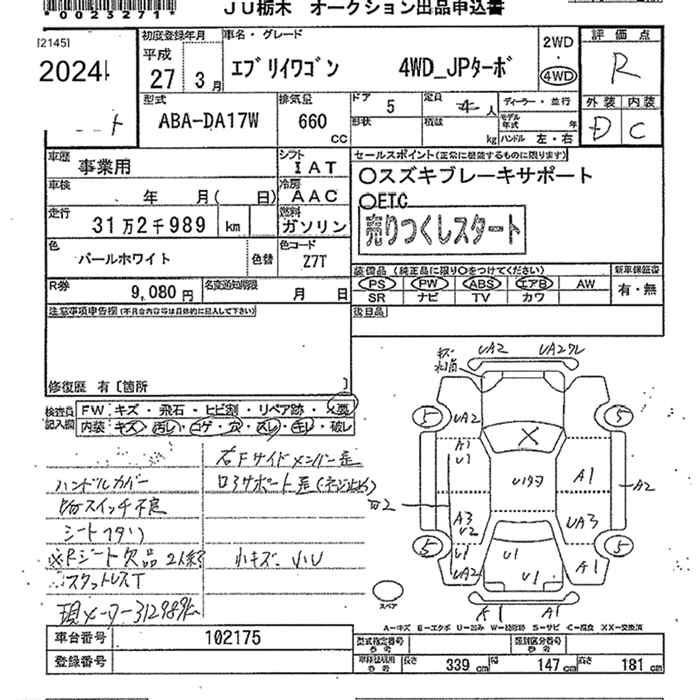 *0023271*
JU栃木 オークション出品申込書
2024
初度登録年月
平成
27 3月
車名・グレード
エブリイワゴン 4WD_JPターボ
2WD
4WD
評価点
R
外装 内装
D C
型式
ABA-DA17W
排気量
660 CC
ドア
5
定員
4人
形状
積載
kg
ディーラー・並行
モデル年式 年
ハンドル 左・右
車歴
事業用
シフト
IAT
車検
年 月( 日)
冷房
AAC
走行
31万2千989 km
燃料
ガソリン
色
パールホワイト
色替
色コード
Z7T
R券
9,080円
名変通知期限
月 日
セールスポイント(正常に機能するものに限ります)
○スズキブレーキサポート
○ETC
売りつくしスタート
装備品(純正品に限り○をつけてください)
PS PW ABS エアB AW
SR ナビ TV カワ
新車保証書
有・無
後日品
注意事項申告欄(不具合内容等は具体的に記入して下さい)
修復歴 有〔箇所 〕
検査員記入欄
FW キズ・飛石・ヒビ割・リペア跡・×要
内装 キズ・汚レ・コゲ・穴・スレ・キレ・破レ
右Fサイドメンバー歪
ハンドルカバー
スイッチ不良
シートフタツ
小キズ、小U
スタットレスT
現メーター312989km
キズ UA2 UA2ワレ
5 5
UA2
A1
U1
A3
U2
U1
UA2
X
A1
UA3
A2
U1
U1
A1
5 5
A1 A1
スペア
A−キズ E−エクボ U−凹み W−補修跡 S−サビ C−腐食 XX−交換済
車台番号 102175
登録番号
型式指定番号 参考
類別区分番号 参考
長さ 339cm 幅 147cm 高さ 181cm